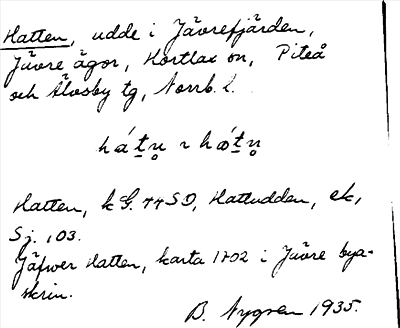 Hatten, udde i Jävrefjärden,
Jävre ägor, Hortlax sn, Piteå
och Älvsby tg, Norrb. l.
há́t̠n̥ ~ hát̠n̥
Hatten, k G. 44 SO, Hattudden, ek,
Sj. 103.
Jäfwer Hatten, karta 1702 i Jävre bya-
skrin.
B. Nygren 1935.